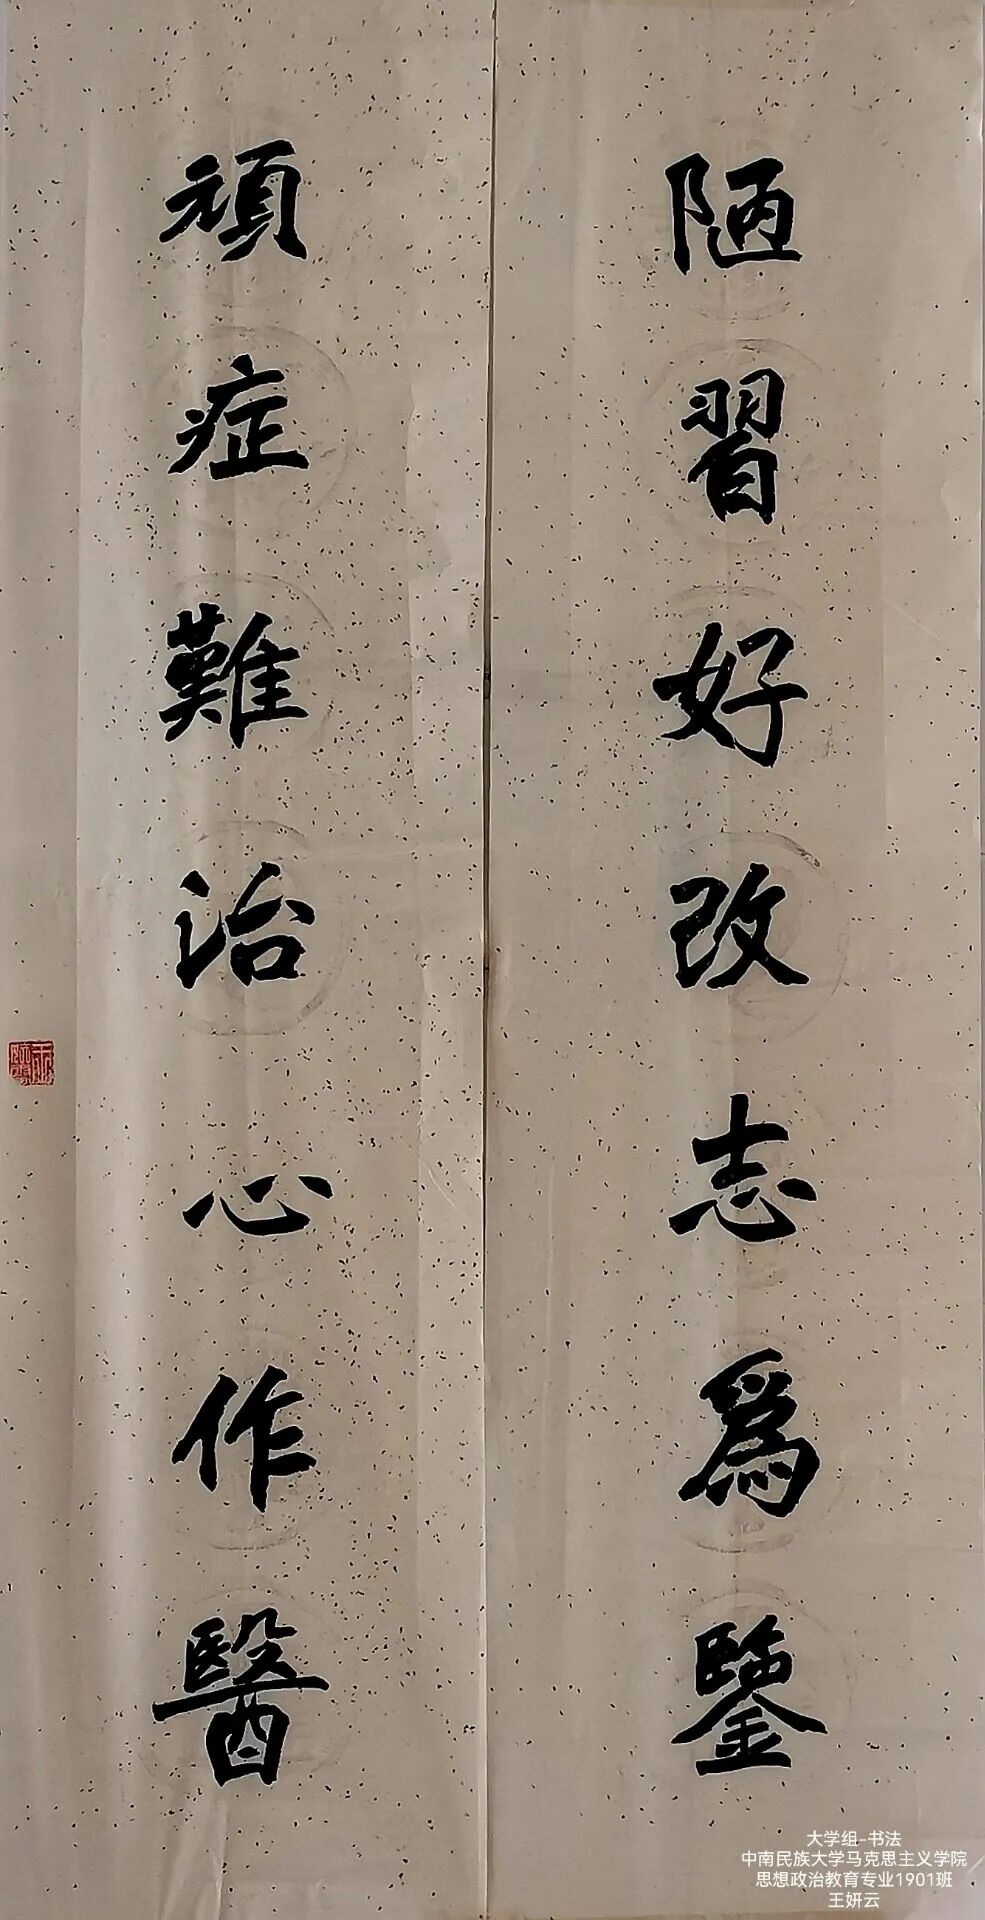 陋習好改志爲鑒
頑症難治心作醫
大学组-书法
中南民族大学马克思主义学院
思想政治教育专业1901班
王妍云